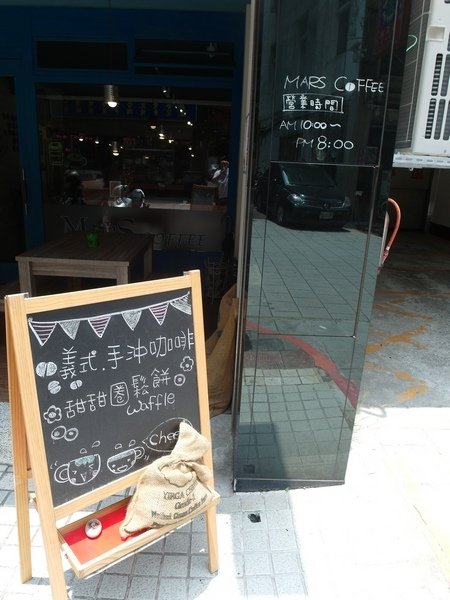 MARS COFFEE
營業時間
AM 10:00~
PM 8:00
MARS COFFEE
義式.手沖咖啡
甜甜圈鬆餅
Waffle
YIRGA